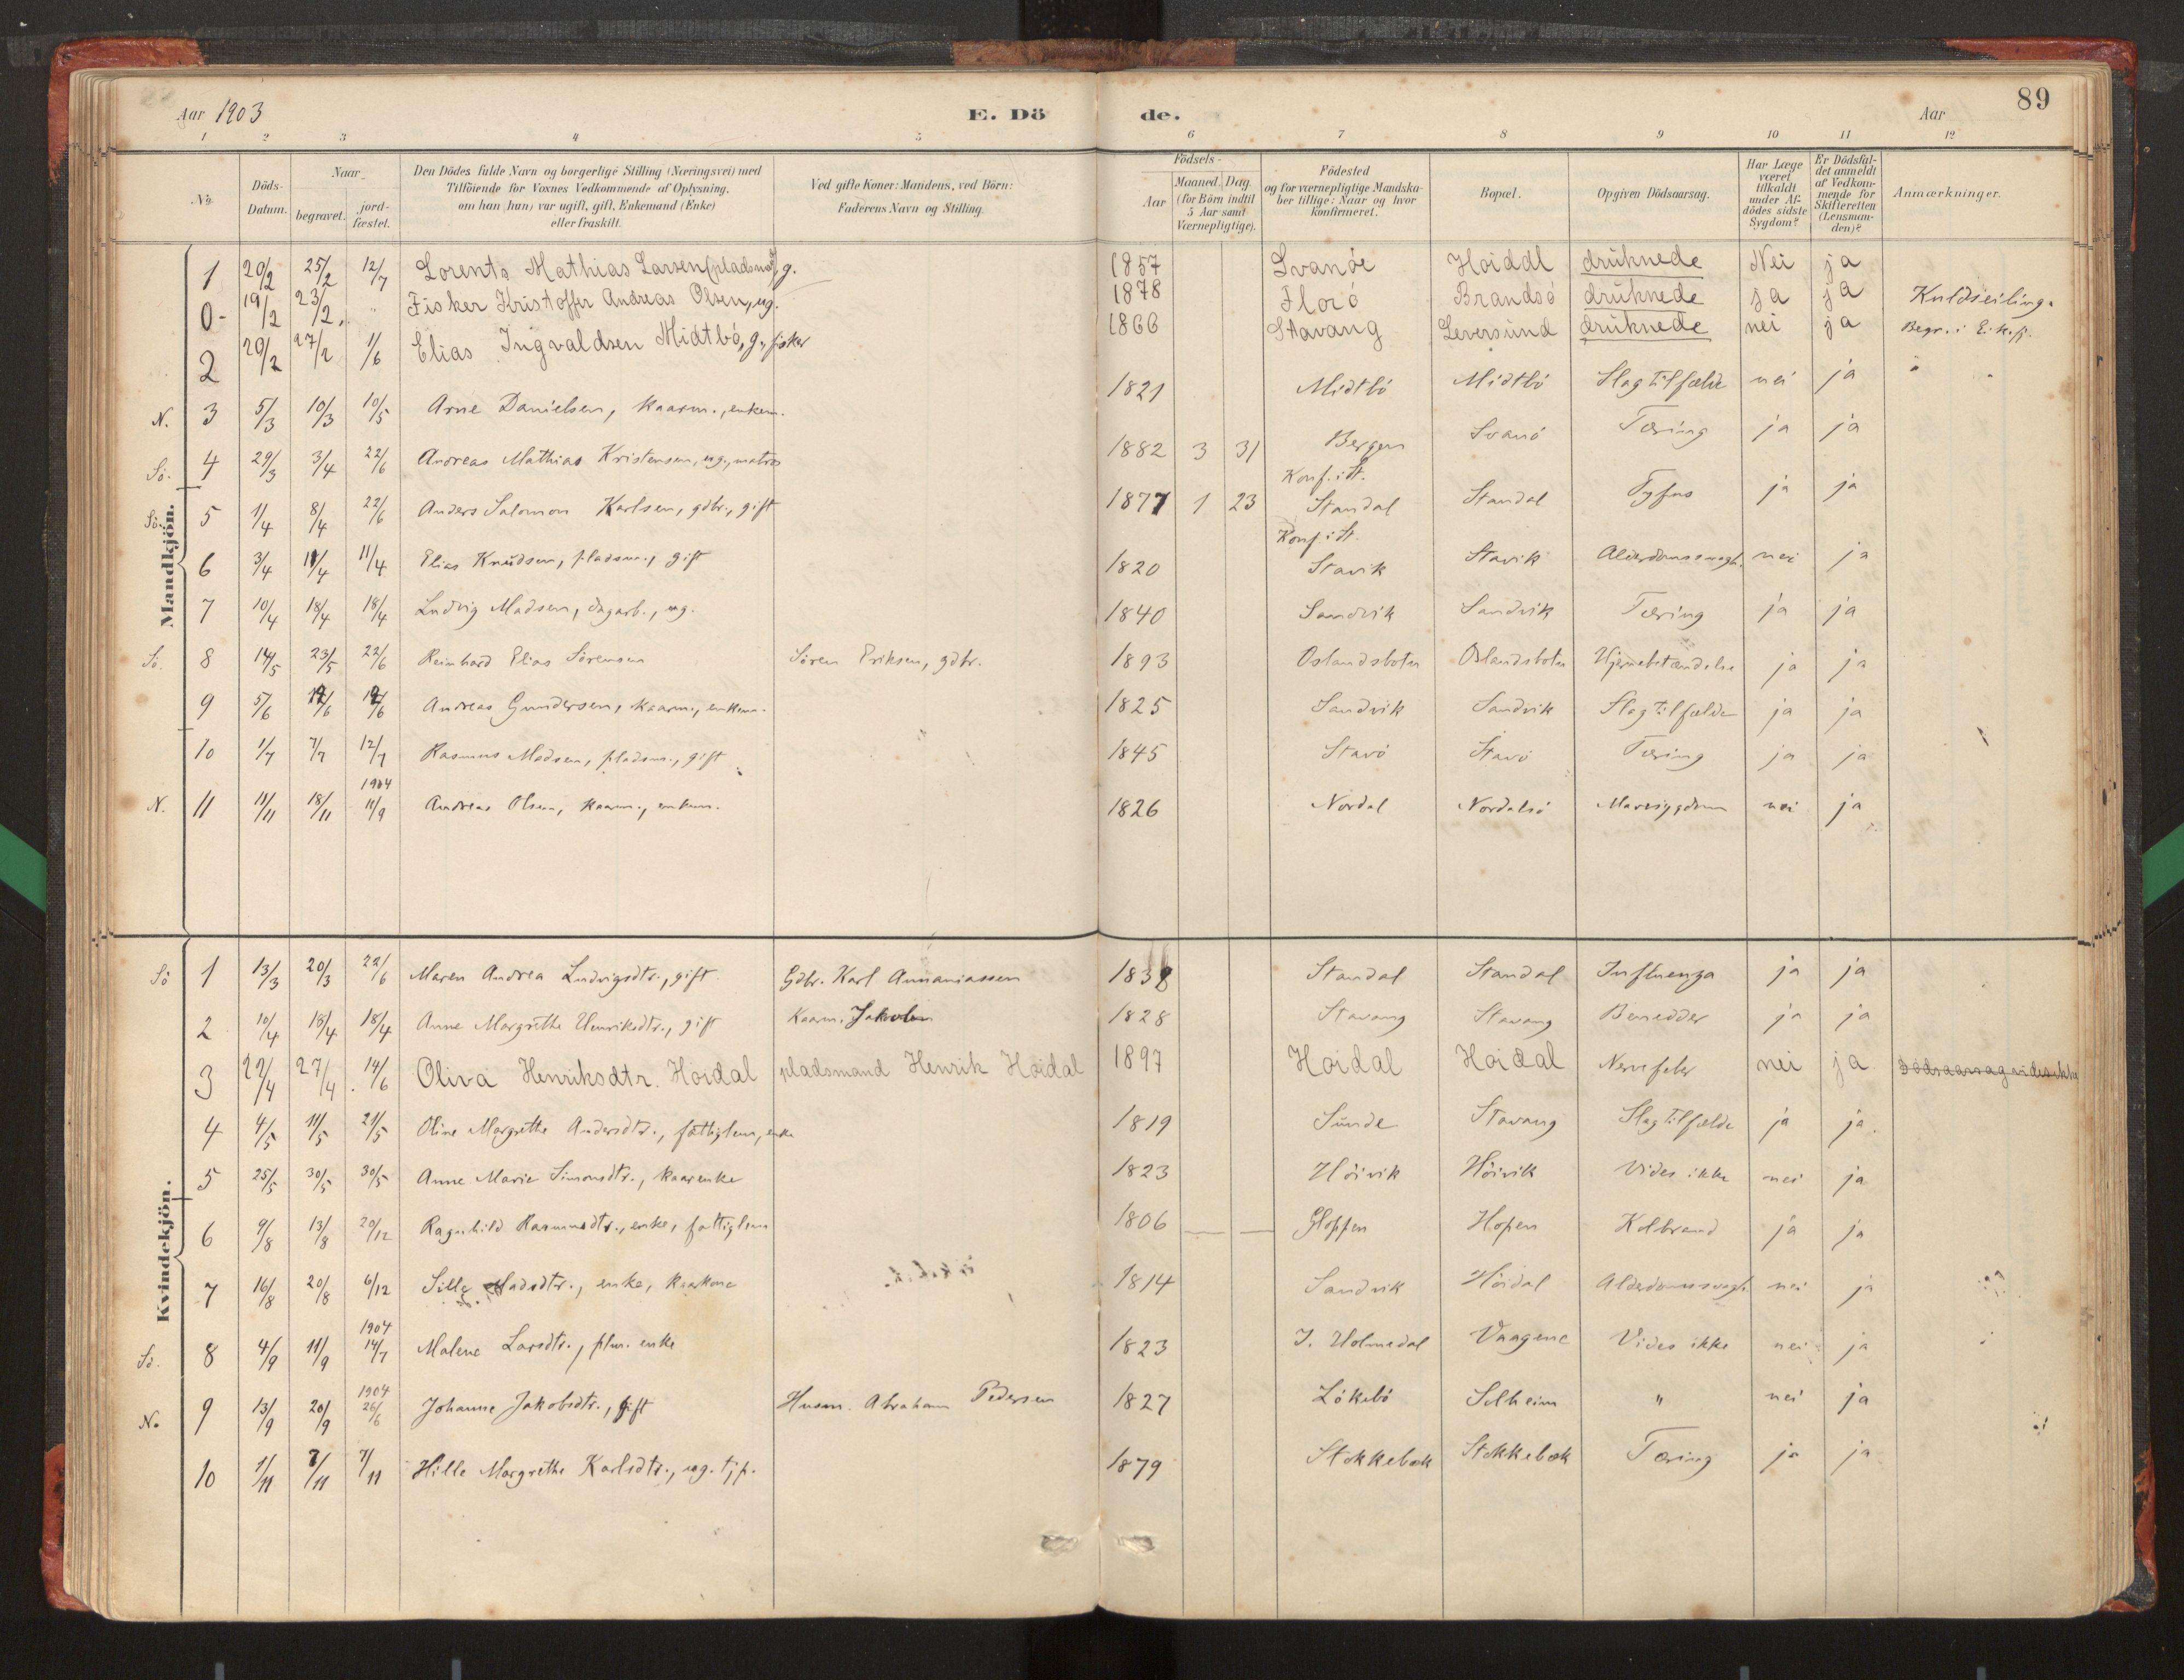 Aar 1903 E. Dö de. Aar 89
1 2 3 4 5 6 7 8 9 10 11 12
No. Döds-Datum. Naar begravet. jordfæstet. Den Dödes fulde Navn og borgerlige Stilling (Næringsvei) med Tilföiende for Voxnes Vedkommende af Oplysning, om han (hun) var ugift, gift, Enkemand (Enke) eller fraskilt. Ved gifte Koner: Mandens, ved Börn: Faderens Navn og Stilling. Födsels- Aar Maaned. Dag. (for Börn indtil 5 Aar samt Værnepligtige). Födested og for værnepligtige Mandskaber tillige: Naar og hvor konfirmeret. Bopæl. Opgiven Dödsaarsag. Har Læge været tilkaldt under Afdödes sidste Sygdom? Er Dödsfaldet anmeldt af Vedkommende for Skifteretten (Lensmanden)? Anmærkninger.
Mandkjön.
1 20/2 25/2 12/7 Lorents Mathias Larsen (pladsmd), g. 1857 Svanöe Hoiddl druknede Nei ja
0- 19/2 23/2 " Fisker Kristoffer Andreas Olsen, ug. 1878 Floró Brandsó druknede ja ja Kuldseiling.
2 20/2 27/2 1/6 Elias Ingvaldsen Midtbó, g., fisker 1866 Stavang Leversund druknede nei ja Begr. i
N. 3 5/3 10/3 10/5 Arne Danielsen, kaarm., enkem. 1821 Midtbó Midtbó Slagtilfælde nei ja
Sö. 4 29/3 3/4 22/6 Andreas Mathias Kristensen, ug., matros 1882 3 31 Bergen Konf. i St. Svanö Tæring ja ja
Sö. 5 1/4 8/4 22/6 Anders Salomon Karlsen, gdbr., gift 1877 1 23 Standal Konf. i St. Standal Tyfus ja ja
6 3/4 11/4 11/4 Elias Knudsen, pladsm., gift 1820 Stavik Stavik Alderdomssvagh. nei ja
7 10/4 18/4 18/4 Ludvig Madsen, dagarb., ug. 1840 Sandvik Sandvik Tæring ja ja
Sö. 8 14/5 23/5 22/6 Reinhard Elias Sörensen Sören Eriksen, gdbr. 1893 Oslandsbotn Oslandsbotn Hjernebetændelse ja ja
9 5/6 12/6 12/6 Andreas Gundersen, kaarm., enkem. 1825 Sandvik Sandvik Slagtilfælde ja ja
10 1/7 7/7 12/7 Rasmus Madsen, pladsm., gift 1845 Stavö Stavö Tæring ja ja
1904
N. 11 11/11 18/11 11/9 Andreas Olsen, kaarm., enkem. 1826 Nordal Nordalsö Mavesygdom nei ja
Kvindekjön.
Sö 1 13/3 20/3 22/6 Maren Andrea Ludvigsdtr., gift Gdbr. Karl Annaniassen 1838 Standal Standal Influenza ja ja
2 10/4 18/4 18/4 Anne Margrethe Henriksdtr., gift Kaarm. 1828 Stavang Stavang Benedder ja ja
3 22/4 27/4 14/6 Oliva Henriksdtr. Hoidal pladsmand Henrik Hoidal 1897 Hoidal Hoidal Nervefeber nei ja Dödsaarsag vides ikke
4 4/5 11/5 21/5 Oline Margrethe Andersdtr., fattiglem, enke 1819 Sunde Stavang Slagtilfælde ja ja.
5 25/5 30/5 30/5 Anne Marie Simonsdtr., kaarenke 1823 Höivik Höivik Vides ikke nei ja
6 9/8 13/8 20/12 Ragnhild Rasmusdtr., enke, fattiglem 1806 Gloppen Hopen Kolbrand ja ja
7 16/8 20/8 6/12 Sille Madsdtr., enke, kaarkone 1814 Sandvik Höidal Alderdomssvagh. nei ja
1904
Sö. 8 4/9 11/9 14/7 Malene Larsdtr., plm. enke 1823 I. Holmedal Vaagene Vides ikke nei ja
1904
N. 9 13/9 20/9 26/6 Johanne Jakobsdtr., gift Husm. Abraham Pedersen 1827 Lökebö Solheim " nei ja
10 1/11 7/11 7/11 Hille Margrethe Karlsdtr., ug. tjp. 1879 Stokkebæk Stokkebæk Tæring ja ja